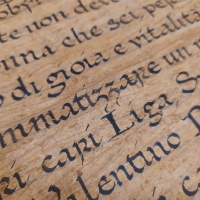 te non deve
nna che sei, pe
di gioia e vitalità
mmatizzare un
cari Liga S
Valentino